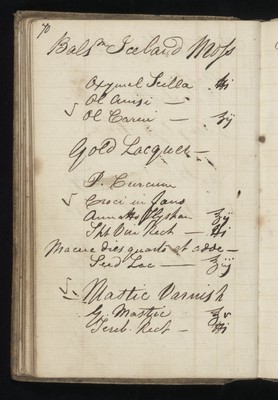 70
Bals^m Iceland Moss
Oxymel Scilla ℔j
Ol Anisi —
Ol Carui — ʒij
Gold Lacquer —
P. Curcum
Croci in fano
Annatto Elyshan ℥ij
Spt Vin Rect — ℔j
Macue dies quarto et adde —
Seed Lac — ℥iij
Mastic Varnish
G. Mastic ℥v
Tereb. Rect — ℔j